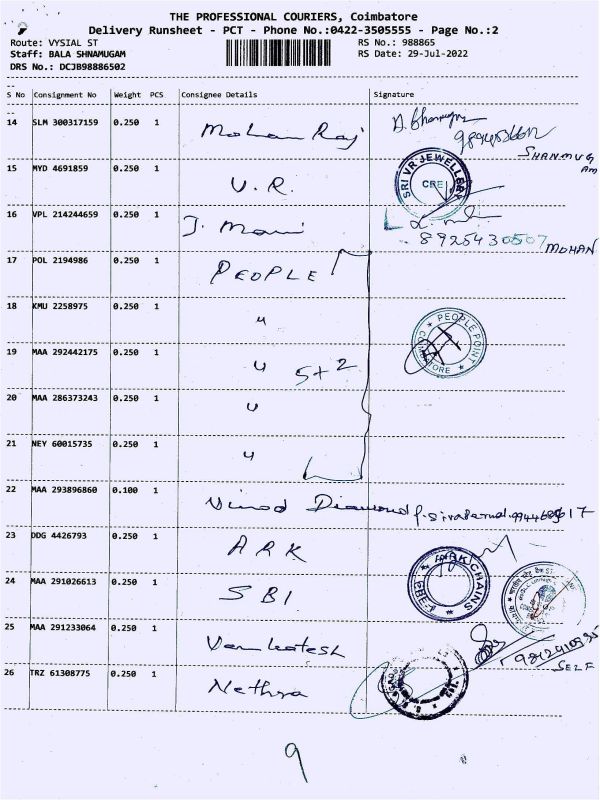 THE PROFESSIONAL COURIERS, Coimbatore
Delivery Runsheet - PCT - Phone No.:0422-3505555 - Page No.:2
Route: VYSIAL ST RS No.: 988865
Staff: BALA SHNAMUGAM RS Date: 29-Jul-2022
DRS No.: DCJB98886502
S No Consignment No Weight PCS Consignee Details Signature
14 SLM 300317159 0.250 1 Mohan Raj
SHANMUGAM
15 MYD 4691859 0.250 1 V.R. SRI VR JEWELLERY CBE
16 VPL 214244659 0.250 1 J. Mani
8925430507 MOHAN
17 POL 2194986 0.250 1 PEOPLE
18 KMU 2258975 0.250 1 " PEOPLE POINT COIMBATORE
19 MAA 292442175 0.250 1 " 5+2
20 MAA 286373243 0.250 1 "
21 NEY 60015735 0.250 1 "
22 MAA 293896860 0.100 1 Vinod Diamond
23 DDG 4426793 0.250 1 ARK ARK CHAINS CBE-1
24 MAA 291026613 0.250 1 SBI
25 MAA 291233064 0.250 1 Venkatesh
SELF
26 TRZ 61308775 0.250 1 Nethra
9